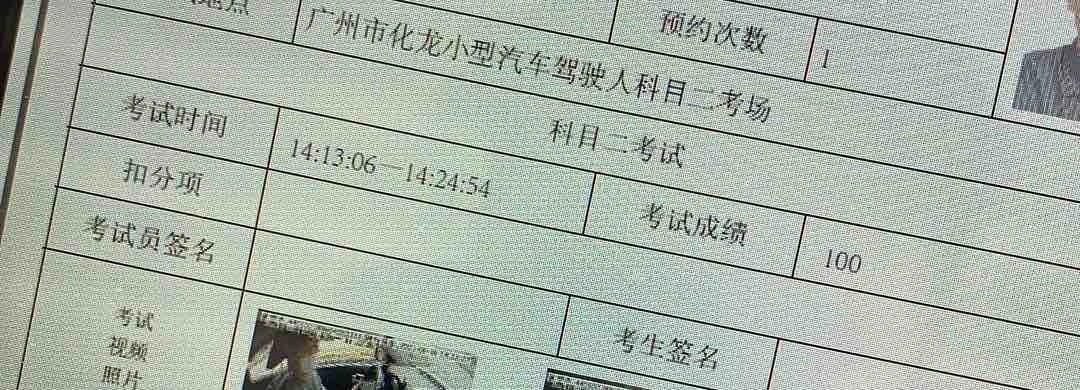 地点
广州市化龙小型汽车驾驶人科目二考场
预约次数
1
科目二考试
考试时间
14:13:06—14:24:54
考试成绩
100
扣分项
考试员签名
考生签名
考试
视频
照片